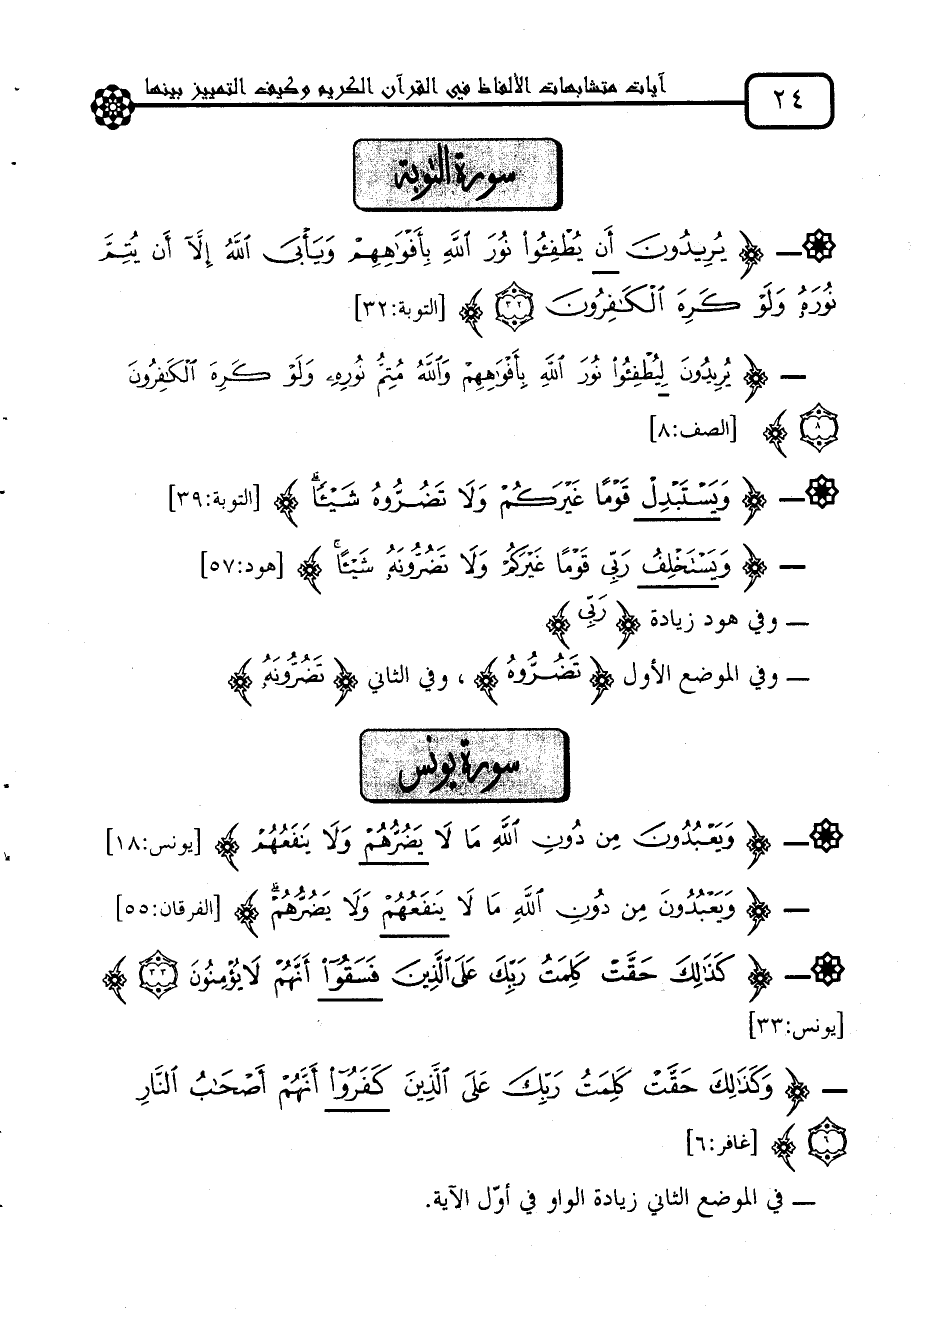 ٢٤
آيات متشابهات الألفاظ في القرآن الكريم وكيف التمييز بينها
سورة التوبة
— ﴿ يُرِيدُونَ أَن يُطْفِـُٔوا۟ نُورَ ٱللَّهِ بِأَفْوَٰهِهِمْ وَيَأْبَى ٱللَّهُ إِلَّآ أَن يُتِمَّ
نُورَهُۥ وَلَوْ كَرِهَ ٱلْكَٰفِرُونَ ٣٢ ﴾ [التوبة:٣٢]
— ﴿ يُرِيدُونَ لِيُطْفِـُٔوا۟ نُورَ ٱللَّهِ بِأَفْوَٰهِهِمْ وَٱللَّهُ مُتِمُّ نُورِهِۦ وَلَوْ كَرِهَ ٱلْكَٰفِرُونَ
٨ ﴾ [الصف:٨]
— ﴿ وَيَسْتَبْدِلْ قَوْمًا غَيْرَكُمْ وَلَا تَضُرُّوهُ شَيْـًٔا ۗ ﴾ [التوبة:٣٩]
— ﴿ وَيَسْتَخْلِفُ رَبِّى قَوْمًا غَيْرَكُمْ وَلَا تَضُرُّونَهُۥ شَيْـًٔا ۚ ﴾ [هود:٥٧]
— وفي هود زيادة ﴿ رَبِّى ﴾
— وفي الموضع الأول ﴿ تَضُرُّوهُ ﴾ ، وفي الثاني ﴿ تَضُرُّونَهُۥ ﴾
سورة يونس
— ﴿ وَيَعْبُدُونَ مِن دُونِ ٱللَّهِ مَا لَا يَضُرُّهُمْ وَلَا يَنفَعُهُمْ ﴾ [يونس:١٨]
— ﴿ وَيَعْبُدُونَ مِن دُونِ ٱللَّهِ مَا لَا يَنفَعُهُمْ وَلَا يَضُرُّهُمْ ۗ ﴾ [الفرقان:٥٥]
— ﴿ كَذَٰلِكَ حَقَّتْ كَلِمَتُ رَبِّكَ عَلَى ٱلَّذِينَ فَسَقُوٓا۟ أَنَّهُمْ لَا يُؤْمِنُونَ ٣٣ ﴾
[يونس:٣٣]
— ﴿ وَكَذَٰلِكَ حَقَّتْ كَلِمَتُ رَبِّكَ عَلَى ٱلَّذِينَ كَفَرُوٓا۟ أَنَّهُمْ أَصْحَٰبُ ٱلنَّارِ
٦ ﴾ [غافر:٦]
— في الموضع الثاني زيادة الواو في أوّل الآية.